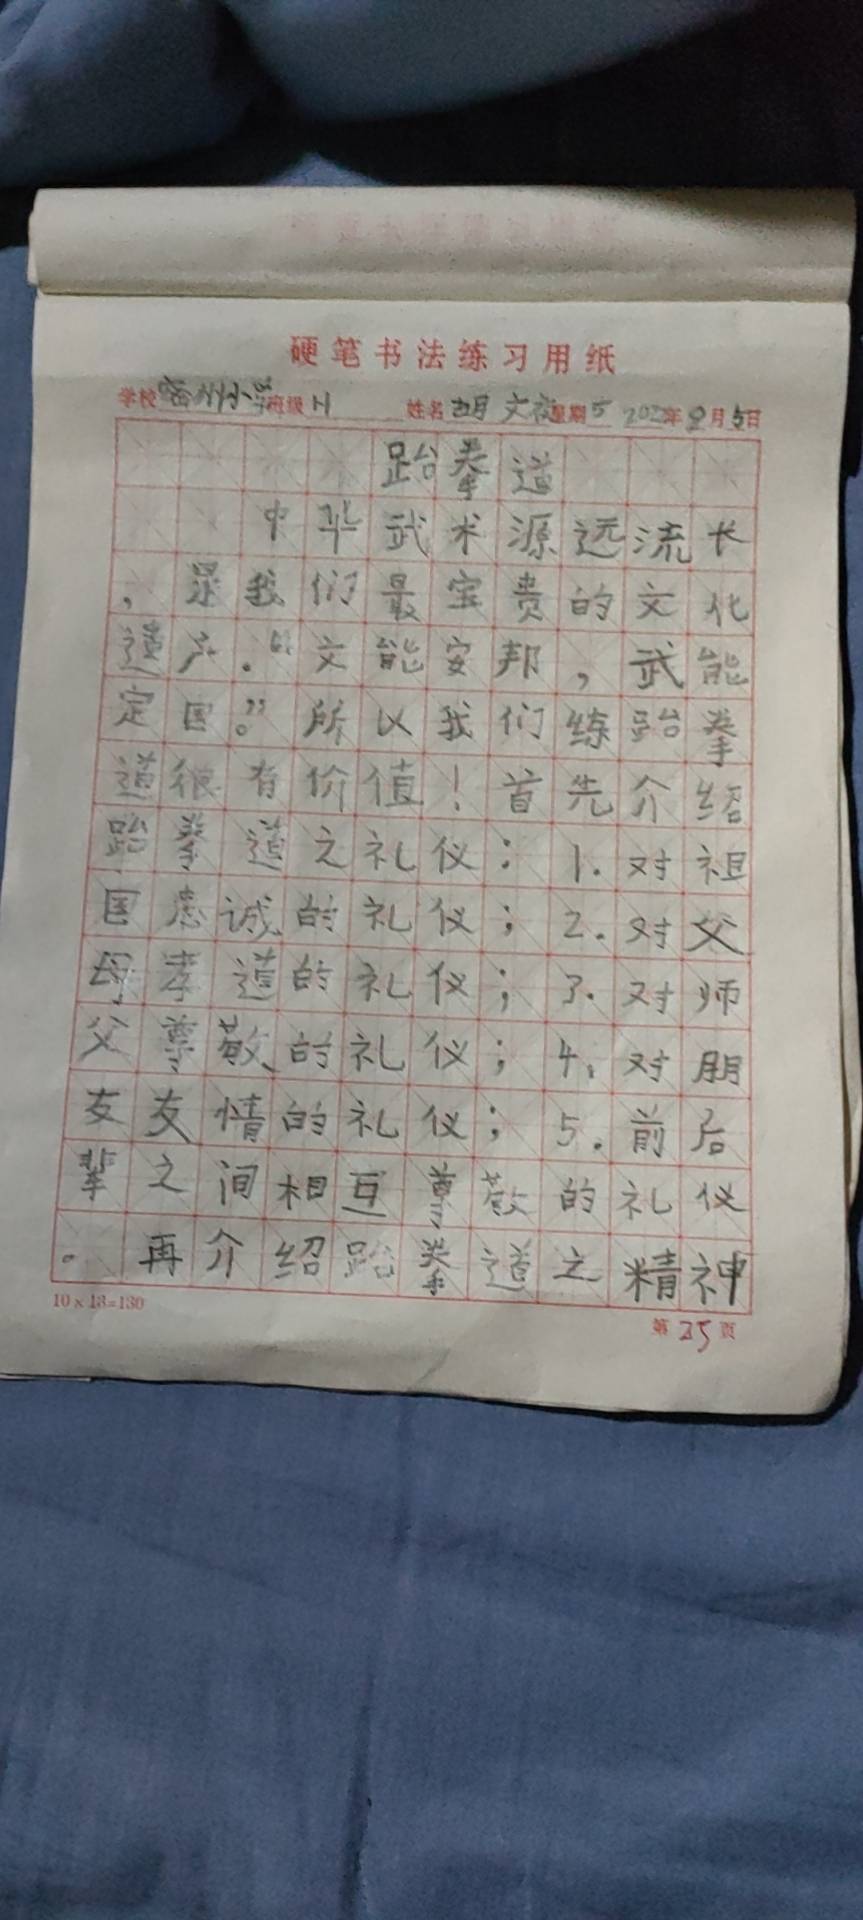 硬笔书法练习用纸
学校 小学 班级 姓名 胡文 星期5 202 年 月5日
跆拳道
中华武术源远流长
,是我们最宝贵的文化
遗产.“文能安邦,武能
定国。”所以我们练跆拳
道很有价值!首先介绍
跆拳道之礼仪:1.对祖
国忠诚的礼仪;2.对父
母孝道的礼仪;3.对师
父尊敬的礼仪;4.对朋
友友情的礼仪;5.前后
辈之间相互尊敬的礼仪
。再介绍跆拳道之精神
10×13=130
第25页